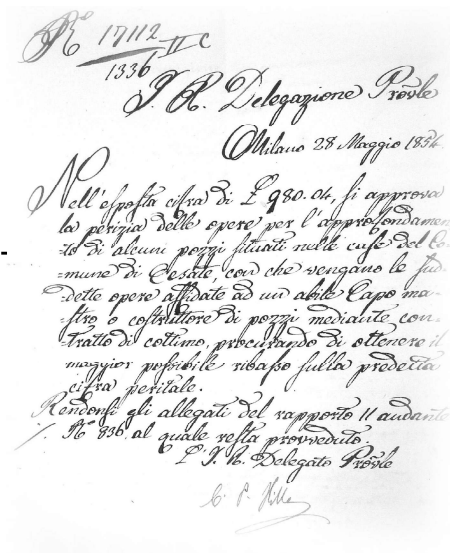 N° 17112 II C
1336
I. R. Delegazione Provle
Milano 28 Maggio 1854
Nell'esposta cifra di £ 980.04, si approva
la perizia delle opere per l'approfondamen-
to di alcuni pozzi situati nelle case del Co-
mune di Cesate, con che vengano le sud-
dette opere affidate ad un abile Capo ma-
stro o costruttore di pozzi mediante con-
tratto di cottimo, procurando di ottenere il
maggior possibile ribasso sulla predetta
cifra peritale.
Rendonsi gli allegati del rapporto 11 andante
N° 836. al quale resta provveduto.
L'I. R. Delegato Provle